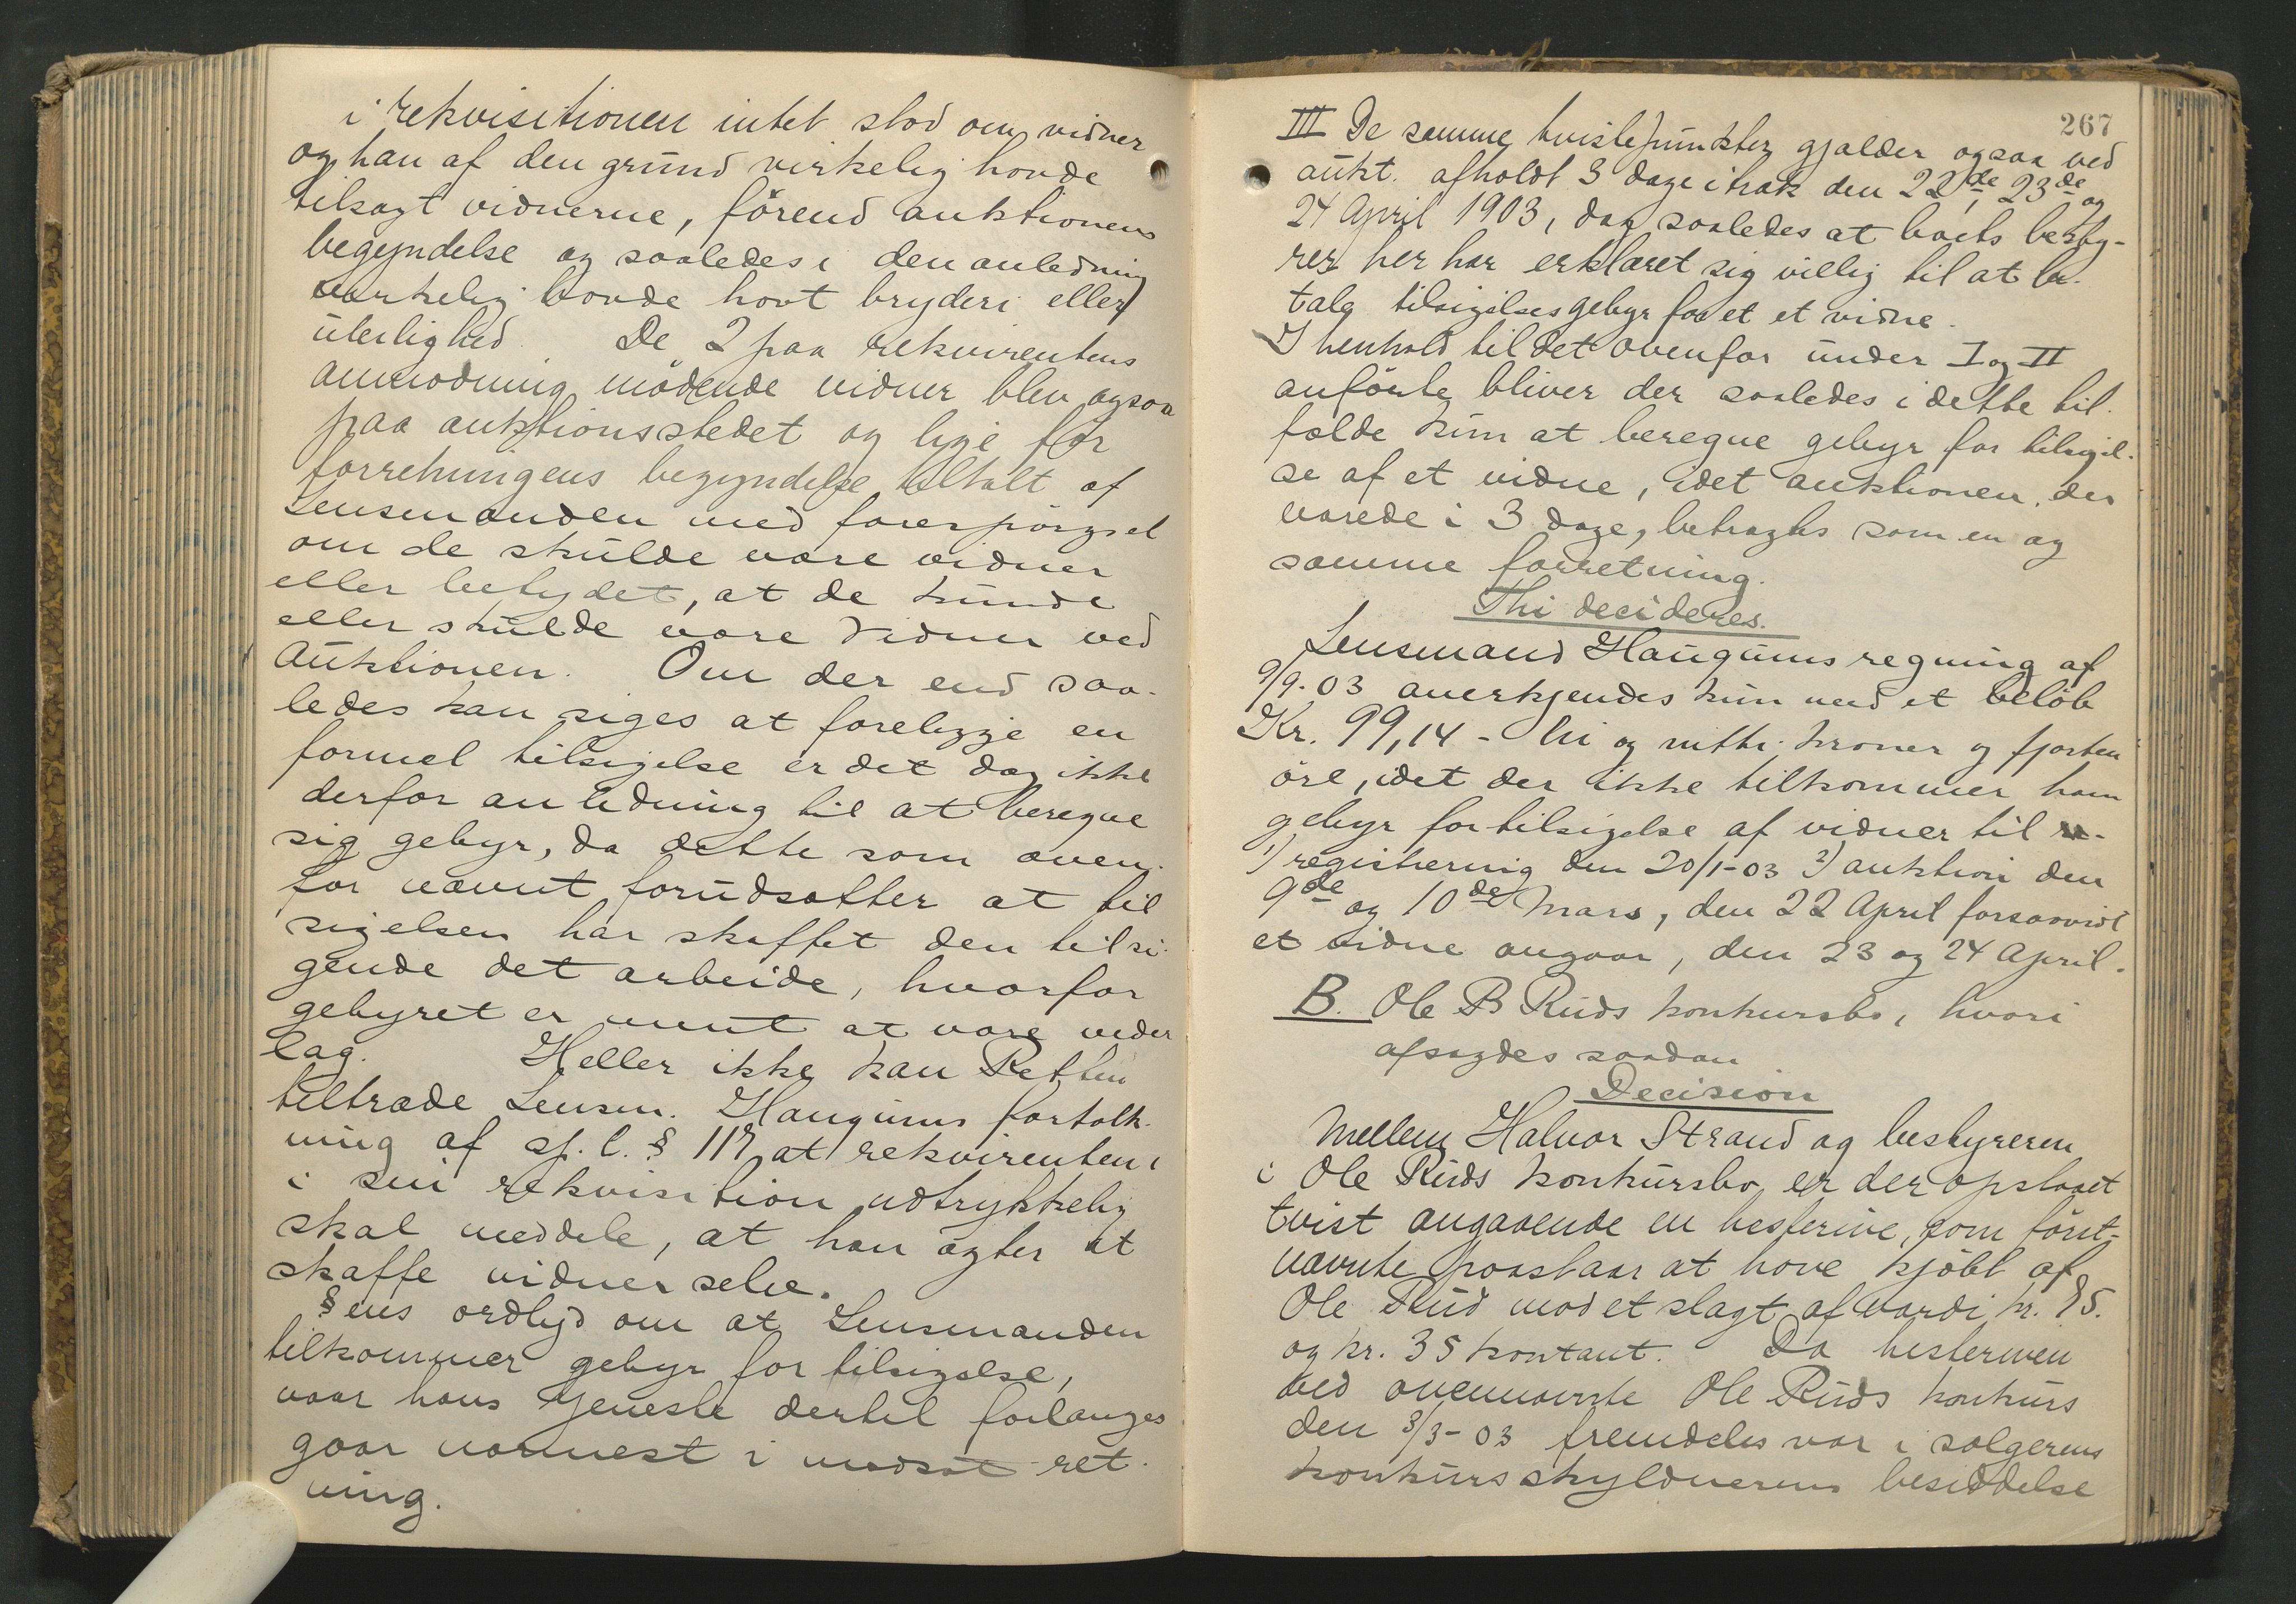 i rekvisitionen intet stod om vidner
og han af den grund virkelig havde
tilsagt vidnerne, förend auktionens
begyndelse og saaledes i den anledning
virkelig havde havt bryderi eller
uleilighed. De 2 paa rekvirentens
anmodning mödende vidner blev ogsaa
paa auktionsstedet og lige för
forretningens begyndelse tiltalt af
Lensmanden med forespörgsel
om de skulde være vidner
eller betydet, at de kunde
eller skulde være vidner ved
Auktionen. Om der end saa-
ledes kan siges at foreligge en
formel tilsigelse er det dog ikke
derfor anledning til at beregne
sig gebyr, da dette som oven-
for nævnt forudsætter at til
sigelsen har skaffet den tilsi-
gende det arbeide, hvorfor
gebyret er ment at være veder
lag. Heller ikke kan Retten
tiltræde Lensm. Haugums fortolk-
ning af sp. l. § 117 at rekvirenten i
i sin rekvisition udtrykkelig
skal meddele, at han agter at
skaffe vidner selv.
§ens ordlyd om at Lensmanden
tilkommer gebyr for tilsigelse,
naar hans tjeneste dertil forlanges
gaar nærmest i modsat ret-
ning.
267
III De samme tvistepunkter gjælder ogsaa ved
aukt. afholdt 3 dage i træk den 22de, 23de og
24 April 1903, dog saaledes at boets besty-
rer her har erklæret sig villig til at be-
tale tilsigelsesgebyr for et et vidne.
I henhold til det ovenfor under I og II
anförte bliver der saaledes i dette til-
fælde kun at beregne gebyr for tilsigel-
se af et vidne, idet auktionen, der
varede i 3 dage, betragtes som en og
samme forretning.
Thi decideres.
Lensmand Haugums regning af
9/9-03 anerkjendes kun med et belöb
Kr. 99,14 - ni og nitti kroner og fjorten
öre, idet der ikke tilkommer ham
gebyr for tilsigelse af vidner til re-
1) registrering den 20/1-03 2) auktion den
9de og 10de Mars, den 22 April forsaavidt
et vidne angaar, den 23 og 24 April.
B. Ole B Ruds konkursbo, hvori
afsagdes saadan
Decision
Mellem Halvor Strand og bestyreren
i Ole Ruds konkursbo er der opstaaet
tvist angaaende en hesterive, som först-
nævnte paastaar at have kjöbt af
Ole Rud mod et slagt af værdi kr. 15.
og kr. 35 kontant. Da hesteriven
ved ovennævnte Ole Ruds konkurs
den 3/3-03 fremdeles var i sælgerens
konkursskyldnerens besiddelse